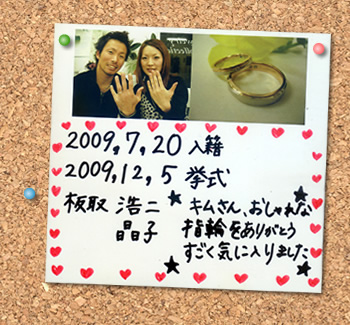 2009,7,20 入籍
2009,12,5 挙式
板取 浩二
晶子
キムさん、おしゃれな
指輪をありがとう
すごく気に入りました